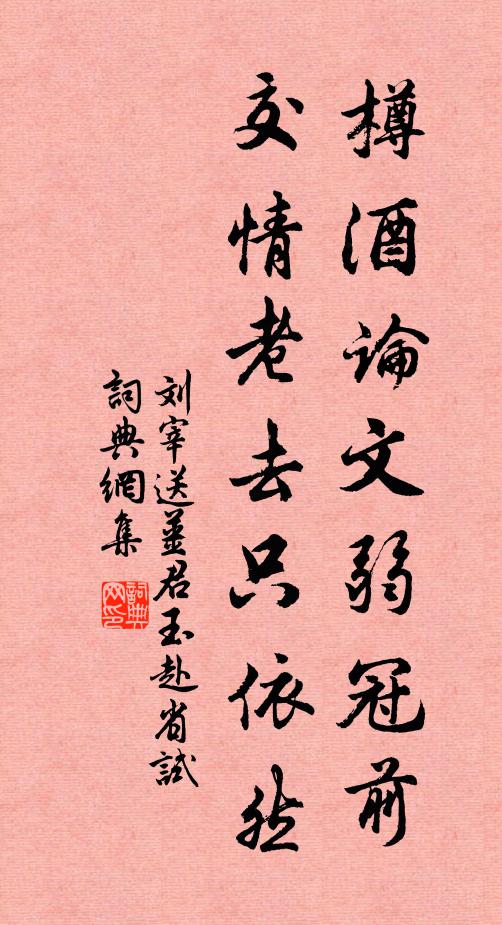 樽酒論文弱冠前
交情老去只依然
刘宰送薑君玉赴省試
詞典網集
詞典网印